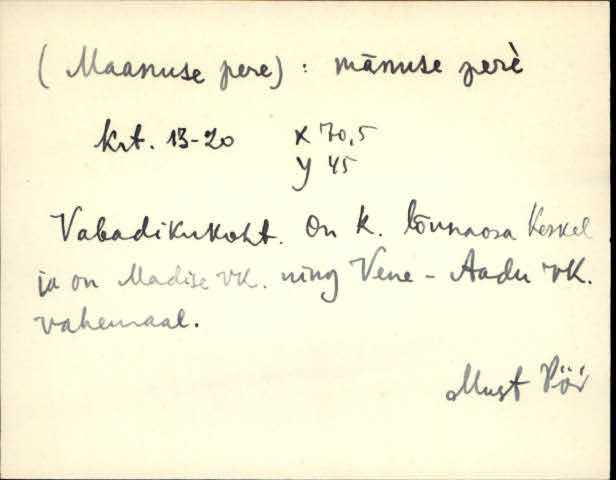 (Maanuse pere) : mānuse perè
krt. 13-20 X 70,5
Y 45
Vabadikukoht. On k. lõunaosa keskel
ja on Madise vk. ning Vene - Aadu vk.
vahemaal.
Must